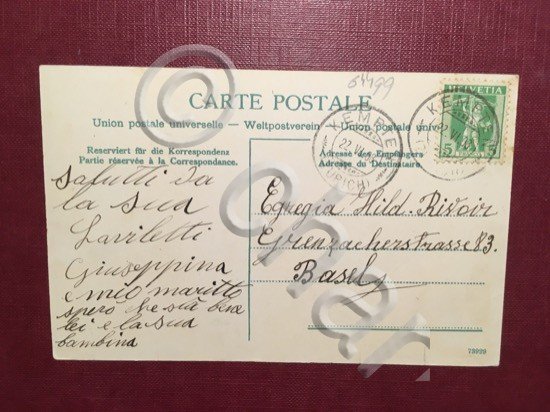 54499
CARTE POSTALE
Union postale universelle. – Weltpostverein – Union postale univer
Reserviert für die Korrespondenz
Partie réservée à la Correspondance.
Adresse des Empfängers
Adresse du Destinataire.
HELVETIA
5 5
KEMP
(ZÜRICH)
Salutti da
la sua
Laviletti
Giuseppina
e mio maritto
spero che sià bene
lei e la sua
bambina
Egregia Hild. Rivoir
Grenzacherstrasse 83.
Basel
73939
© phar